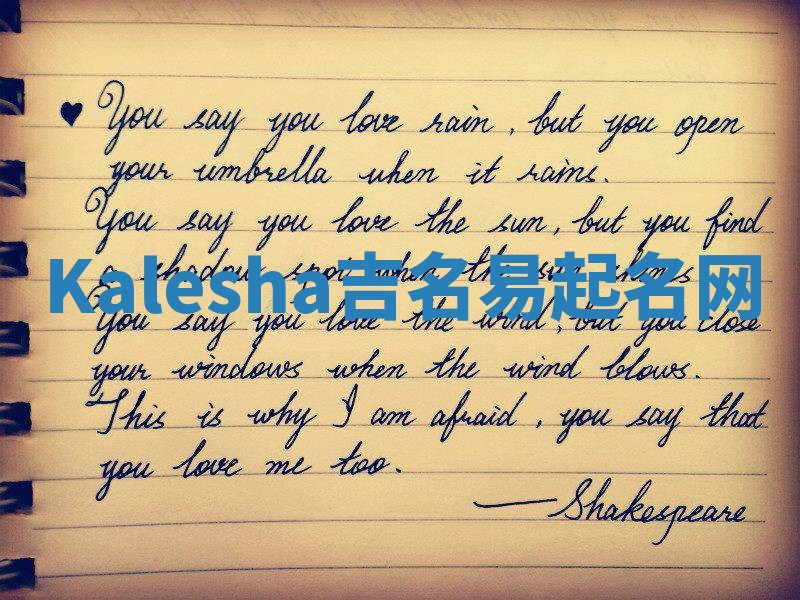 ♥ You say you love rain, but you open
your umbrella when it rains.
You say you love the sun, but you find
a shadow spot when the sun shines
Kalesha吉名易起名网
You say you love the wind, but you close
your windows when the wind blows.
This is why I am afraid, you say that
you love me too.
—Shakespeare